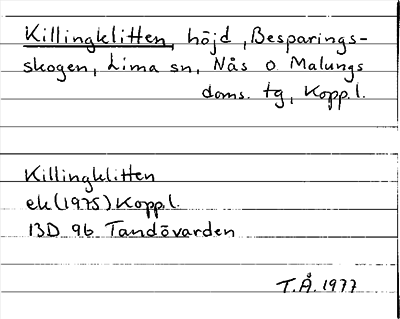 Killingklitten, höjd, Besparings-
skogen, Lima sn, Nås o Malungs
doms. tg, Kopp.l.
Killingklitten
ek (1975) Kopp.l.
13D 9b Tandövarden
T.Å. 1977